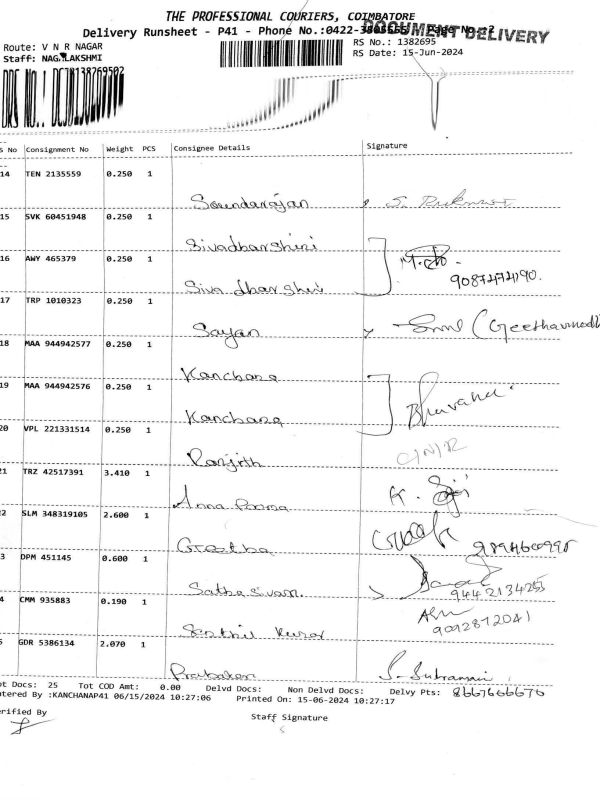 THE PROFESSIONAL COURIERS, COIMBATORE
Delivery Runsheet - P41 - Phone No.:0422-
DOCUMENT DELIVERY
Route: V N R NAGAR
RS No.: 1382695
Staff: NAGALAKSHMI
RS Date: 15-Jun-2024
DRS No.:
s No Consignment No Weight PCS Consignee Details Signature
14 TEN 2135559 0.250 1
Soundarajan
15 SVK 60451948 0.250 1
Sivadharshini
16 AWY 465379 0.250 1
Siva dharshini
17 TRP 1010323 0.250 1
Sayan
18 MAA 944942577 0.250 1
Kanchana
19 MAA 944942576 0.250 1
Kanchana Bhuvana.
20 VPL 221331514 0.250 1
Ranjith
21 TRZ 42517391 3.410 1
Anna Poorna
2 SLM 348319105 2.600 1
Geetha
3 DPM 451145 0.600 1
Satha Sivam. 9442134255
4 CMM 935883 0.190 1
Senthil Kumar 9092872041
5 GDR 5386134 2.070 1
Prabakaran
ot Docs: 25 Tot COD Amt: 0.00 Delvd Docs: Non Delvd Docs: Delvy Pts: 8667666676
ntered By :KANCHANAP41 06/15/2024 10:27:06 Printed On: 15-06-2024 10:27:17
erified By Staff Signature